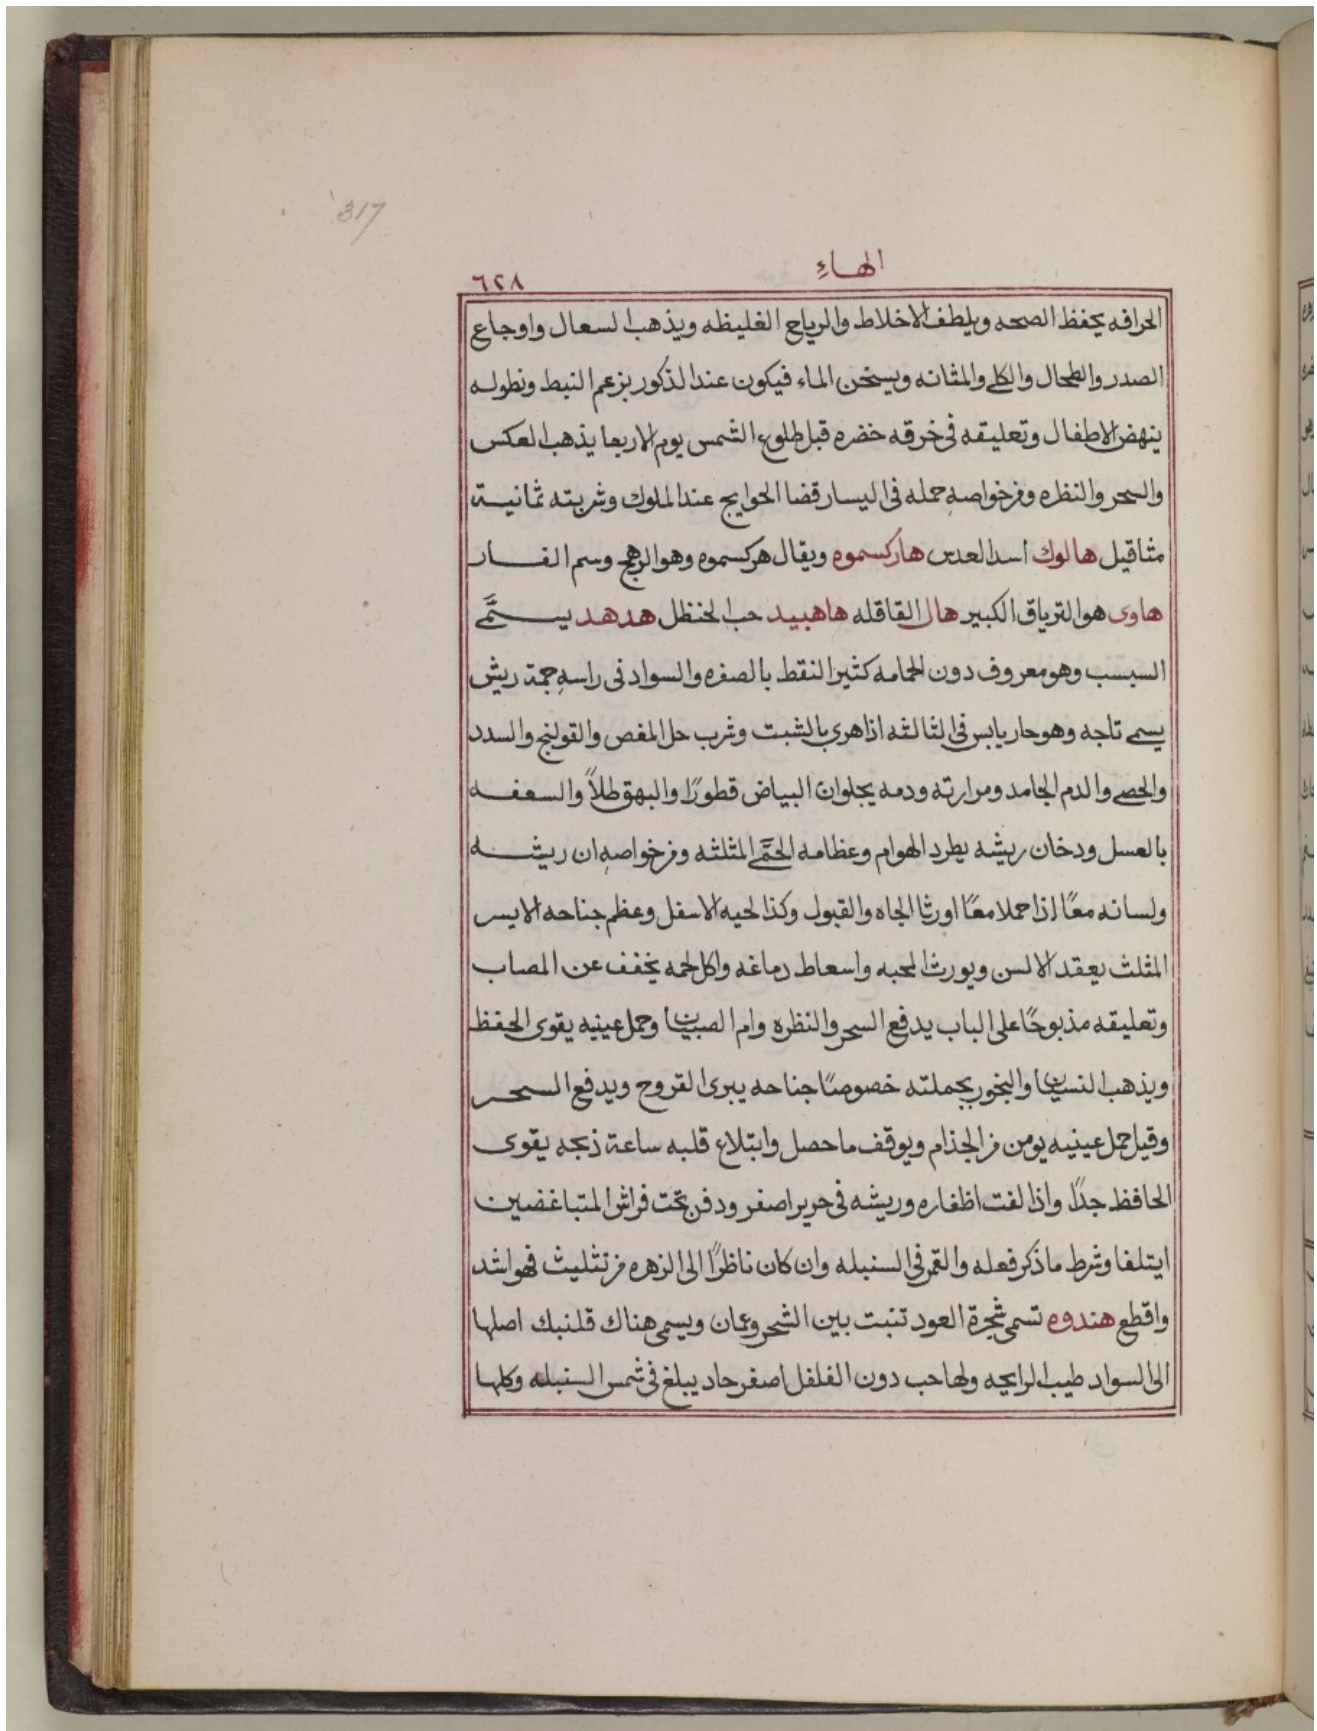 317
الهاءِ
٦٢٨
الحرافه يحفظ الصحه ويلطف الاخلاط والرياح الغليظه ويذهب السعال واوجاع
الصدر والطحال والكلى والمثانه ويسخن الماء فيكون عند الذكور بزعم النبط ونطوله
ينهض الاطفال وتعليقه فى خرقه خضره قبل طلوع الشمس يوم الاربعا يذهب العكس
والسحر والنظره ومن خواصهِ حمله فى اليسار قضا الحوايج عند الملوك وشربته ثمانية
مثاقيل هالوك اسد العدس هاركسموه ويقال هركسموه وهو الرهج وسم الفار
هاوى هو الترياق الكبير هال القاقله هاهبيد حب الحنظل هدهد يسمَّى
السبسب وهو معروف دون الحمامه كثير النقط بالصفره والسواد فى راسهِ جمة ريش
يسمى تاجه وهو حار يابس فى الثالثه اذا هرى بالشبت وشرب حل المغص والقولنج والسدد
والحصى والدم الجامد ومرارته ودمه يجلوان البياض قطورًا والبهق طلاً والسعفه
بالعسل ودخان ريشه يطرد الهوام وعظامه الحمَّى المثلثه ومن خواصهِ ان ريشه
ولسانه معًا اذا حملا معًا اورثا الجاه والقبول وكذا لحيه الاسفل وعظم جناحه الايسر
المثلث يعقد الالسن ويورث المحبه واسعاط دماغه واكل لحمه يخفف عن المصاب
وتعليقه مذبوحًا على الباب يدفع السحر والنظره وام الصبيان وحمل عينيه يقوى الحفظ
ويذهب النسيان والبخور بجملته خصوصًا جناحه يبرى القروح ويدفع السحر
وقيل حمل عينيه يومن من الجذام ويوقف ما حصل وابتلاع قلبه ساعة ذبحه يقوى
الحافظ جدًا واذا لفت اظفاره وريشه فى حرير اصفر ودفن تحت فراش المتباغضين
ايتلفا وشرط ما ذكر فعله والقمر فى السنبله وان كان ناظرًا الى الزهره من تثليث فهو اشد
واقطع هندوه تسمى شجرة العود تنبت بين الشحر وعمان ويسمى هناك قلنبك اصلها
الى السواد طيب الرايحه ولها حب دون الفلفل اصفر حاد يبلغ فى شمس السنبله وكلها